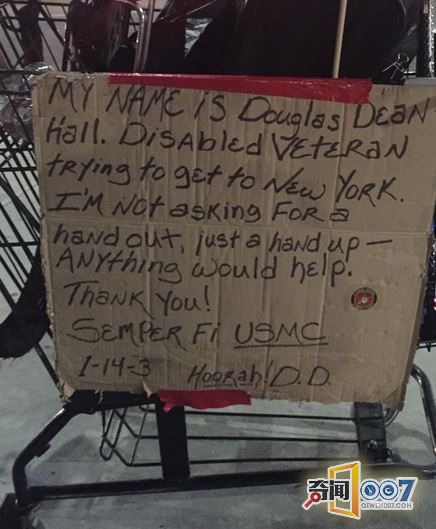 MY NAME iS Douglas DEAN
Hall. DiSAblEd VETERAN
trying to get to NEW YORK.
I'M Not asking FOR a
hand out, just a hand up —
ANYthing would help.
THANK YOU!
SEMPER Fi USMC
1-14-3 HooRah! D.D.
奇闻007
QIWEN007.COM